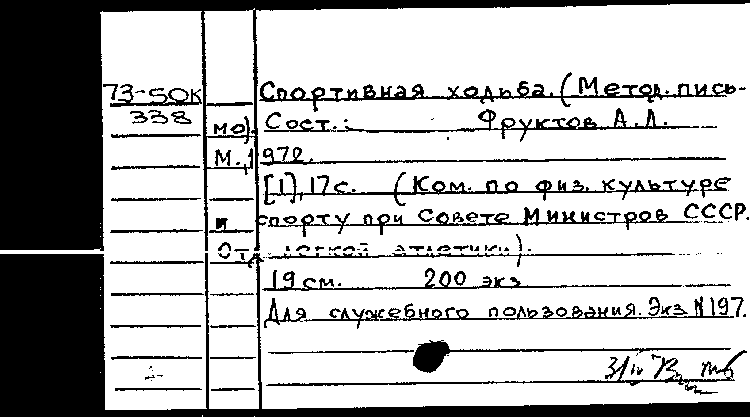 73-50К Спортивная ходьба. (Метод. пись-
338 мо). Сост.: Фруктов А.Л.
М., 1972.
[1], 17 с. (Ком. по физ. культуре
и спорту при Совете Министров СССР.
Отд. легкой атлетики).
19 см. 200 экз
Для служебного пользования. Экз N 197.